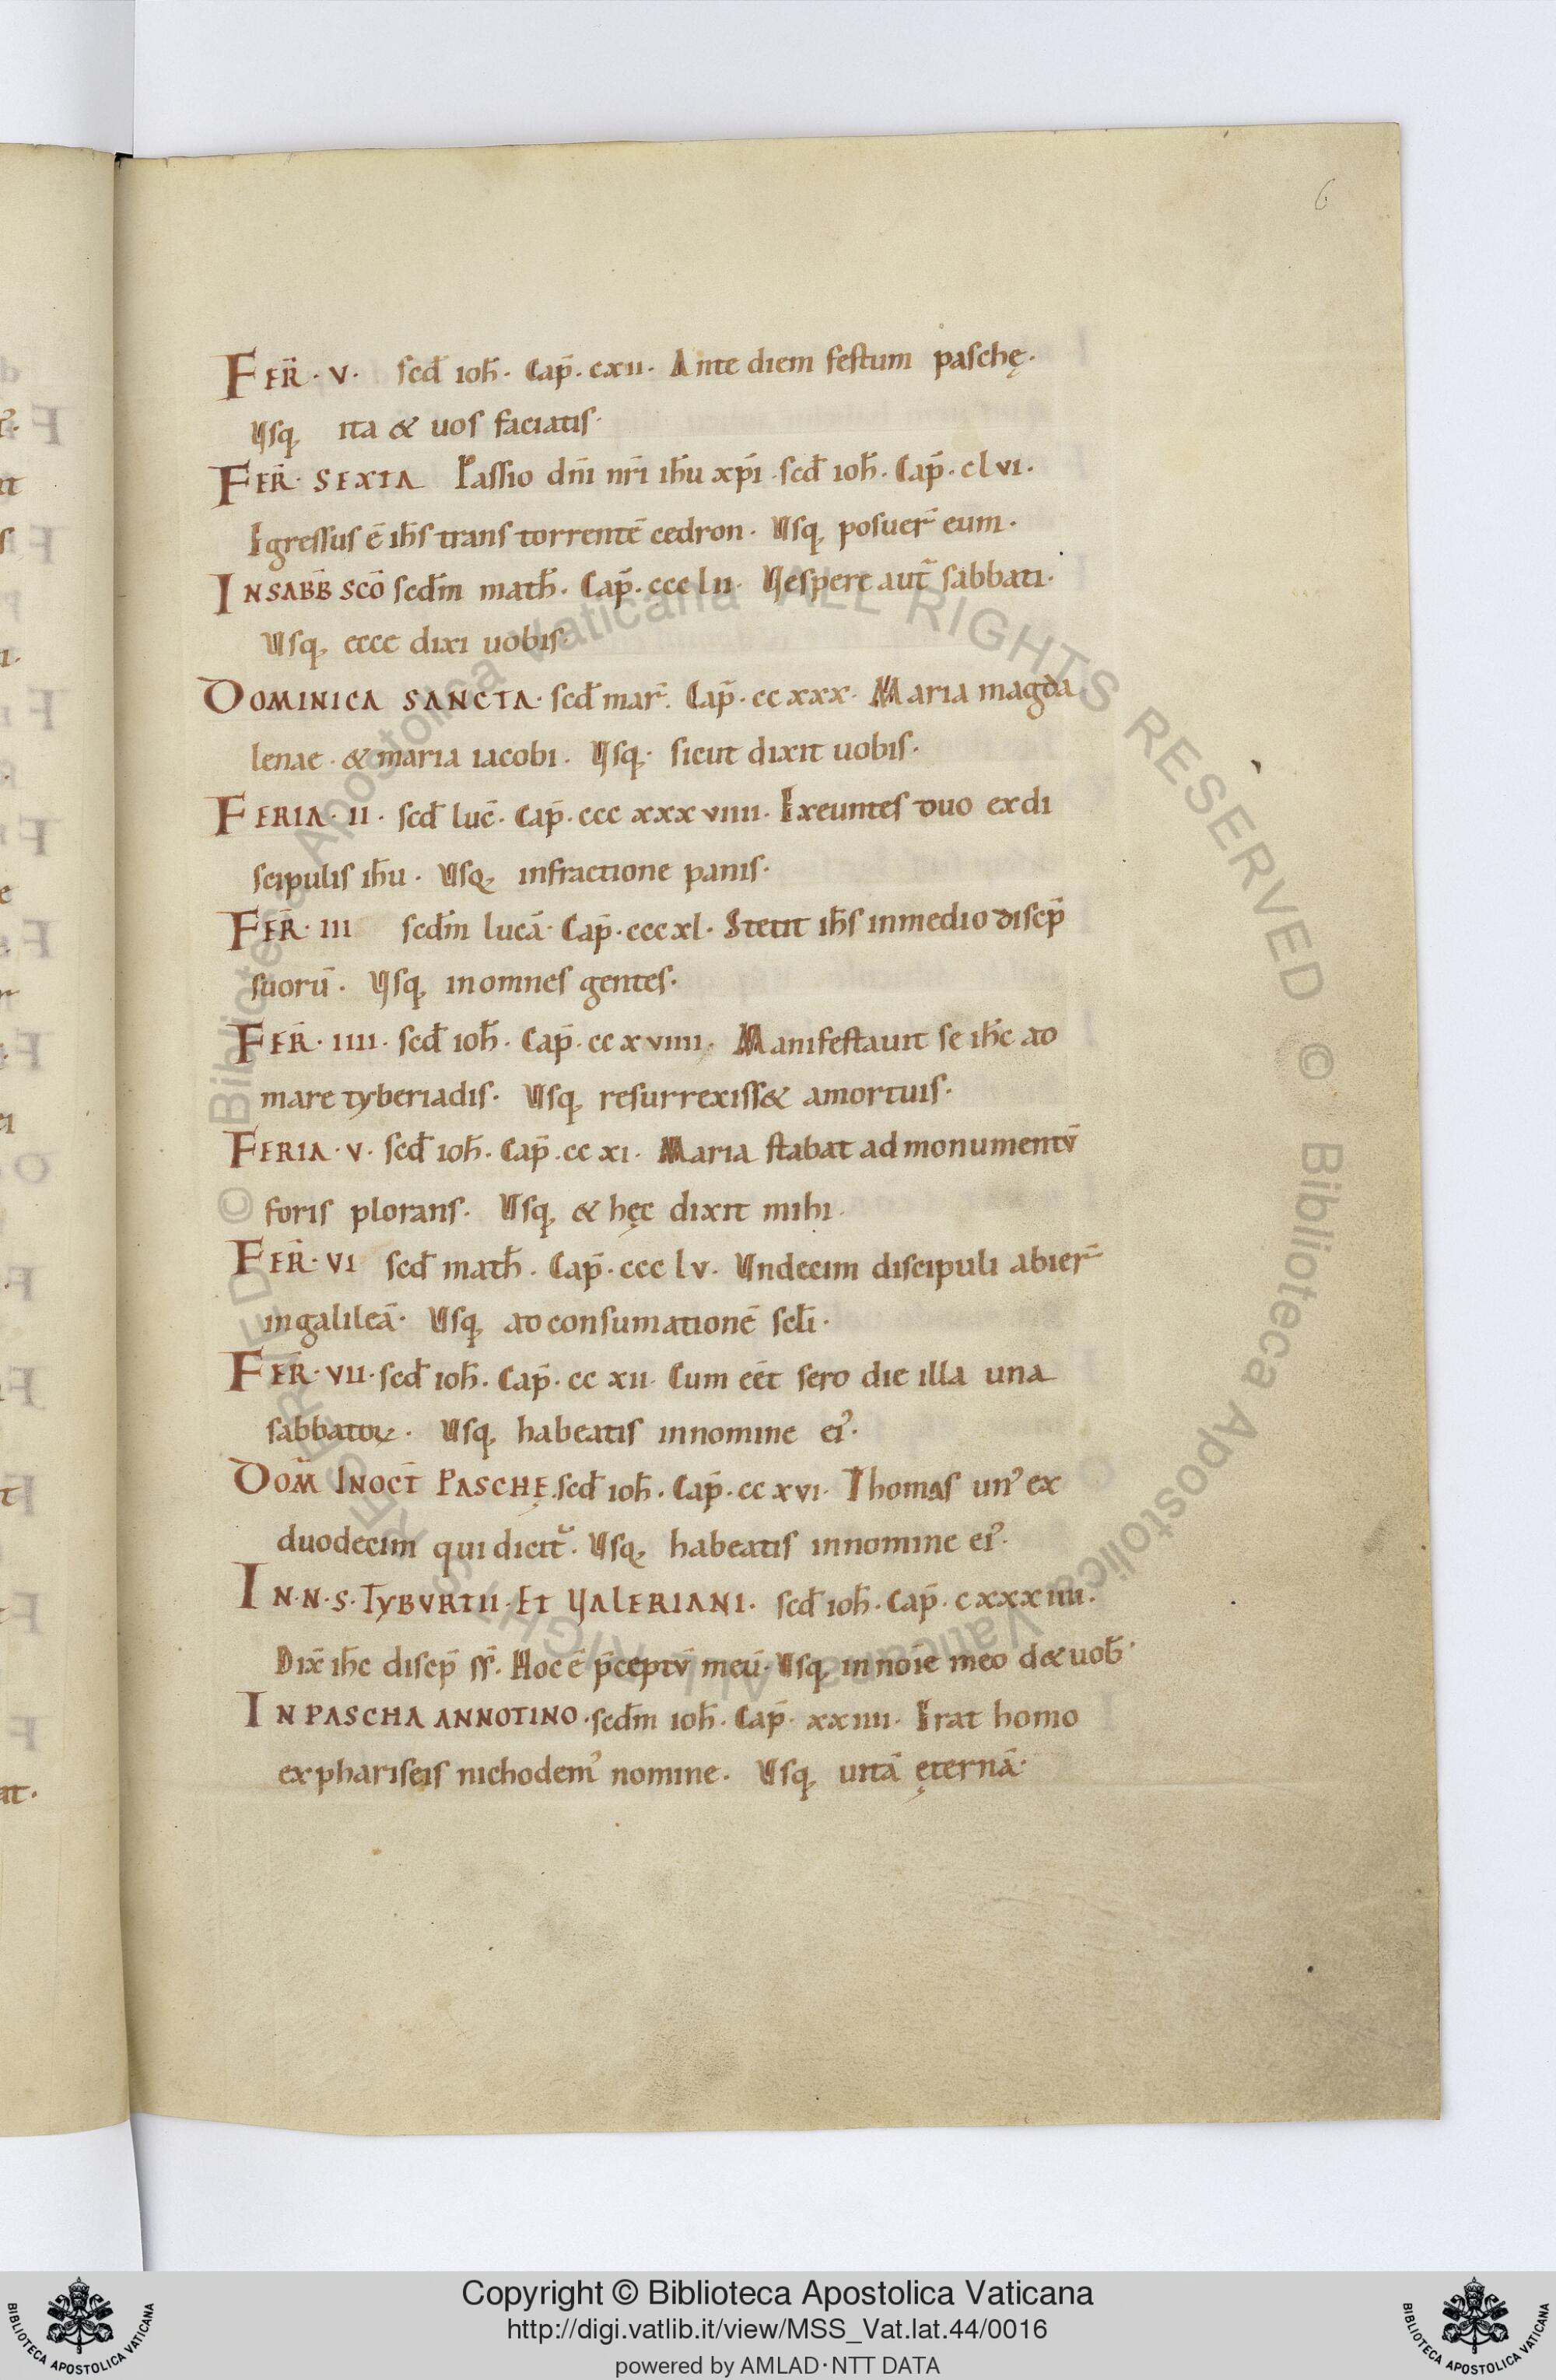 6
FER̄ · V · scđ ioħ · Cap̄ · cxii · Ante diem festum paschę ·
Usq; ita & uos faciatis ·
FER̄ · SEXTA Passio dñi nr̄i iħu xp̄i · scđ ioħ · Cap̄ · clvi ·
Egressus ē iħs trans torrentē cedron · Usq; posuer̄ eum ·
IN SABB̄ SCŌ scđm matħ · Cap̄ · ccclii · Uespere aut̄ sabbati ·
Usq; ecce dixi uobis ·
DOMINICA SANCTA · scđ mar̄ · Cap̄ · ccxxx · Maria magda
lenae · & maria iacobi · Usq; · sicut dixit uobis ·
FERIA · II · scđ luc̄ · Cap̄ · ccc xxxviiii · Exeuntes duo ex di
scipulis iħu · Usq; in fractione panis ·
FER̄ · III scđm lucā · Cap̄ · cccxl · Stetit iħs in medio discip̄
suorū · Usq; in omnes gentes ·
FER̄ · IIII · scđ ioħ · Cap̄ · ccxviiii · Manifestauit se iħc ad
mare tyberiadis · Usq; resurrexiss& a mortuis ·
FERIA · V · scđ ioħ · Cap̄ · ccxi · Maria stabat ad monumentū
foris plorans · Usq; & hęc dixit mihi ·
FER̄ · VI scđ matħ · Cap̄ · ccclv · Undecim discipuli abier̄
in galileā · Usq; ad consumationē scł̄i ·
FER̄ · VII · scđ ioħ · Cap̄ · ccxii · Cum eēt sero die illa una
sabbatoꝝ · Usq; habeatis in nomine ei᾽ ·
DOM̄ IN OCT̄ PASCHĘ · scđ ioħ · Cap̄ · ccxvi · Thomas un᾽ ex
duodecim qui dicit᷑ · Usq; habeatis in nomine ei᾽ ·
IN · N · S · TYBVRTII · ET UALERIANI · scđ ioħ · Cap̄ · cxxxiiii ·
Dix̄ iħc discip̄ ss̄ · Hoc ē p̄ceptū meū · Usq; in noīe meo d& uob̄ ·
IN PASCHA ANNOTINO · scđm ioħ · Cap̄ · xxiiii · Erat homo
ex phariseis nichodem᾽ nomine · Usq; uitā ęternā ·
© Biblioteca Apostolica Vaticana ALL RIGHTS RESERVED © Biblioteca Apostolica Vaticana ALL RIGHTS RESERVED
Copyright © Biblioteca Apostolica Vaticana
http://digi.vatlib.it/view/MSS_Vat.lat.44/0016
powered by AMLAD · NTT DATA
BIBLIOTECA APOSTOLICA VATICANA
BIBLIOTECA APOSTOLICA VATICANA